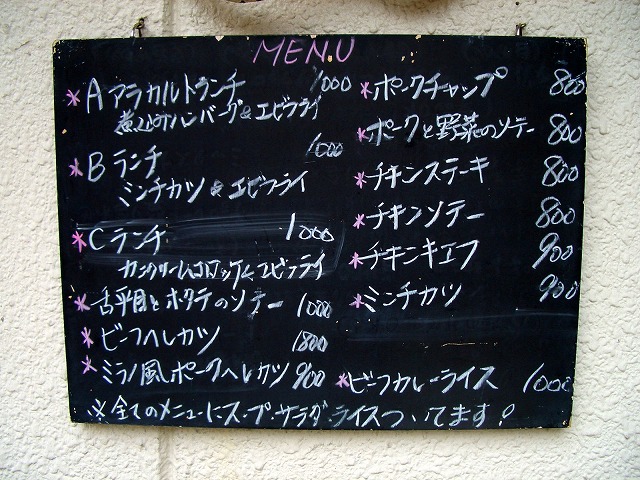 MENU
*A アラカルトランチ 1000
煮込みハンバーグ&エビフライ
*B ランチ 1000
ミンチカツ&エビフライ
*C ランチ 1000
カニクリームコロッケ&エビフライ
*舌平目とホタテのソテー 1000
*ビーフヘレカツ 1800
*ミラノ風ポークヘレカツ 900
*ポークチャップ 800
*ポークと野菜のソテー 800
*チキンステーキ 800
*チキンソテー 800
*チキンキエフ 900
*ミンチカツ 900
*ビーフカレーライス 1000
※全てのメニューにスープ・サラダ・ライスついてます!